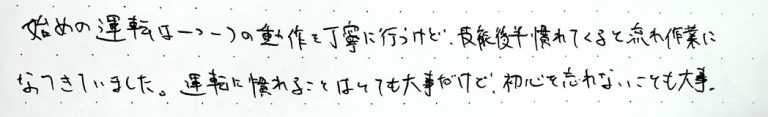 始めの運転は一つ一つの動作を丁寧に行うけど、技能後半慣れてくると流れ作業に
なってきていました。運転に慣れることはとても大事だけど、初心を忘れないことも大事。